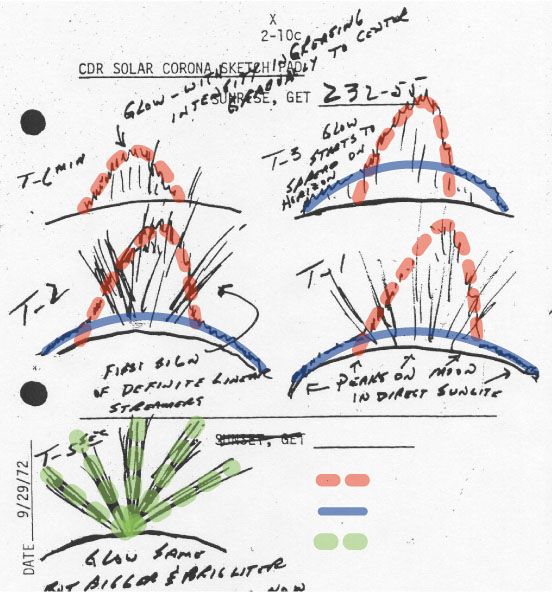 X
2-10c
CDR SOLAR CORONA SKETCH PAD
GLOW - WITH
INTENSITY INCREASING
GRADUALLY TO CENTER
SUNRISE, GET 232-55
T-6 MIN
T-3
GLOW
STARTS TO
SPREAD ON
HORIZON
T-2
T-1
FIRST SIGN
OF DEFINITE LINEAR
STREAMERS
PEAKS ON MOON
IN DIRECT SUNLITE
SUNSET, GET
T-5 SEC
DATE 9/29/72
GLOW SAME
BUT BIGGER & BRIGHTER
NOW